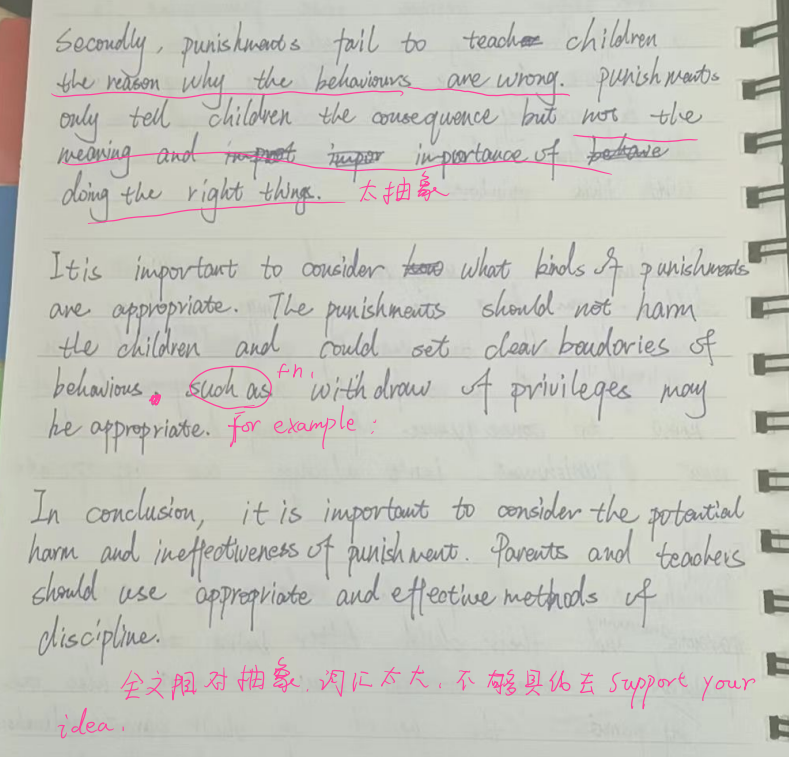 Secondly, punishments fail to teach children
the reason why the behaviours are wrong. punishments
only tell children the consequence but not the
meaning and importance of
doing the right things. 太抽象
It is important to consider what kinds of punishments
are appropriate. The punishments should not harm
the children and could set clear boudories of
behavious. such as withdraw of privileges may
be appropriate. for example:
In conclusion, it is important to consider the potential
harm and ineffectiveness of punishment. Parents and teachers
should use appropriate and effective methods of
discipline.
全文相对抽象.词汇太大.不够具体去 support your
idea.